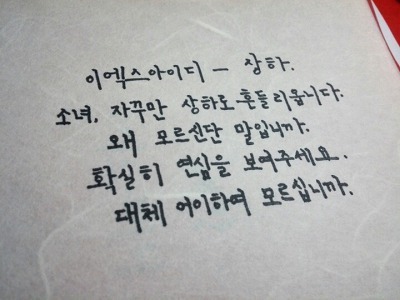 이엑스아이디 - 상하.
소녀, 자꾸만 상하로 흔들리옵니다.
왜 모르신단 말입니까.
확실히 연심을 보여주세요.
대체 어이하여 모르십니까.